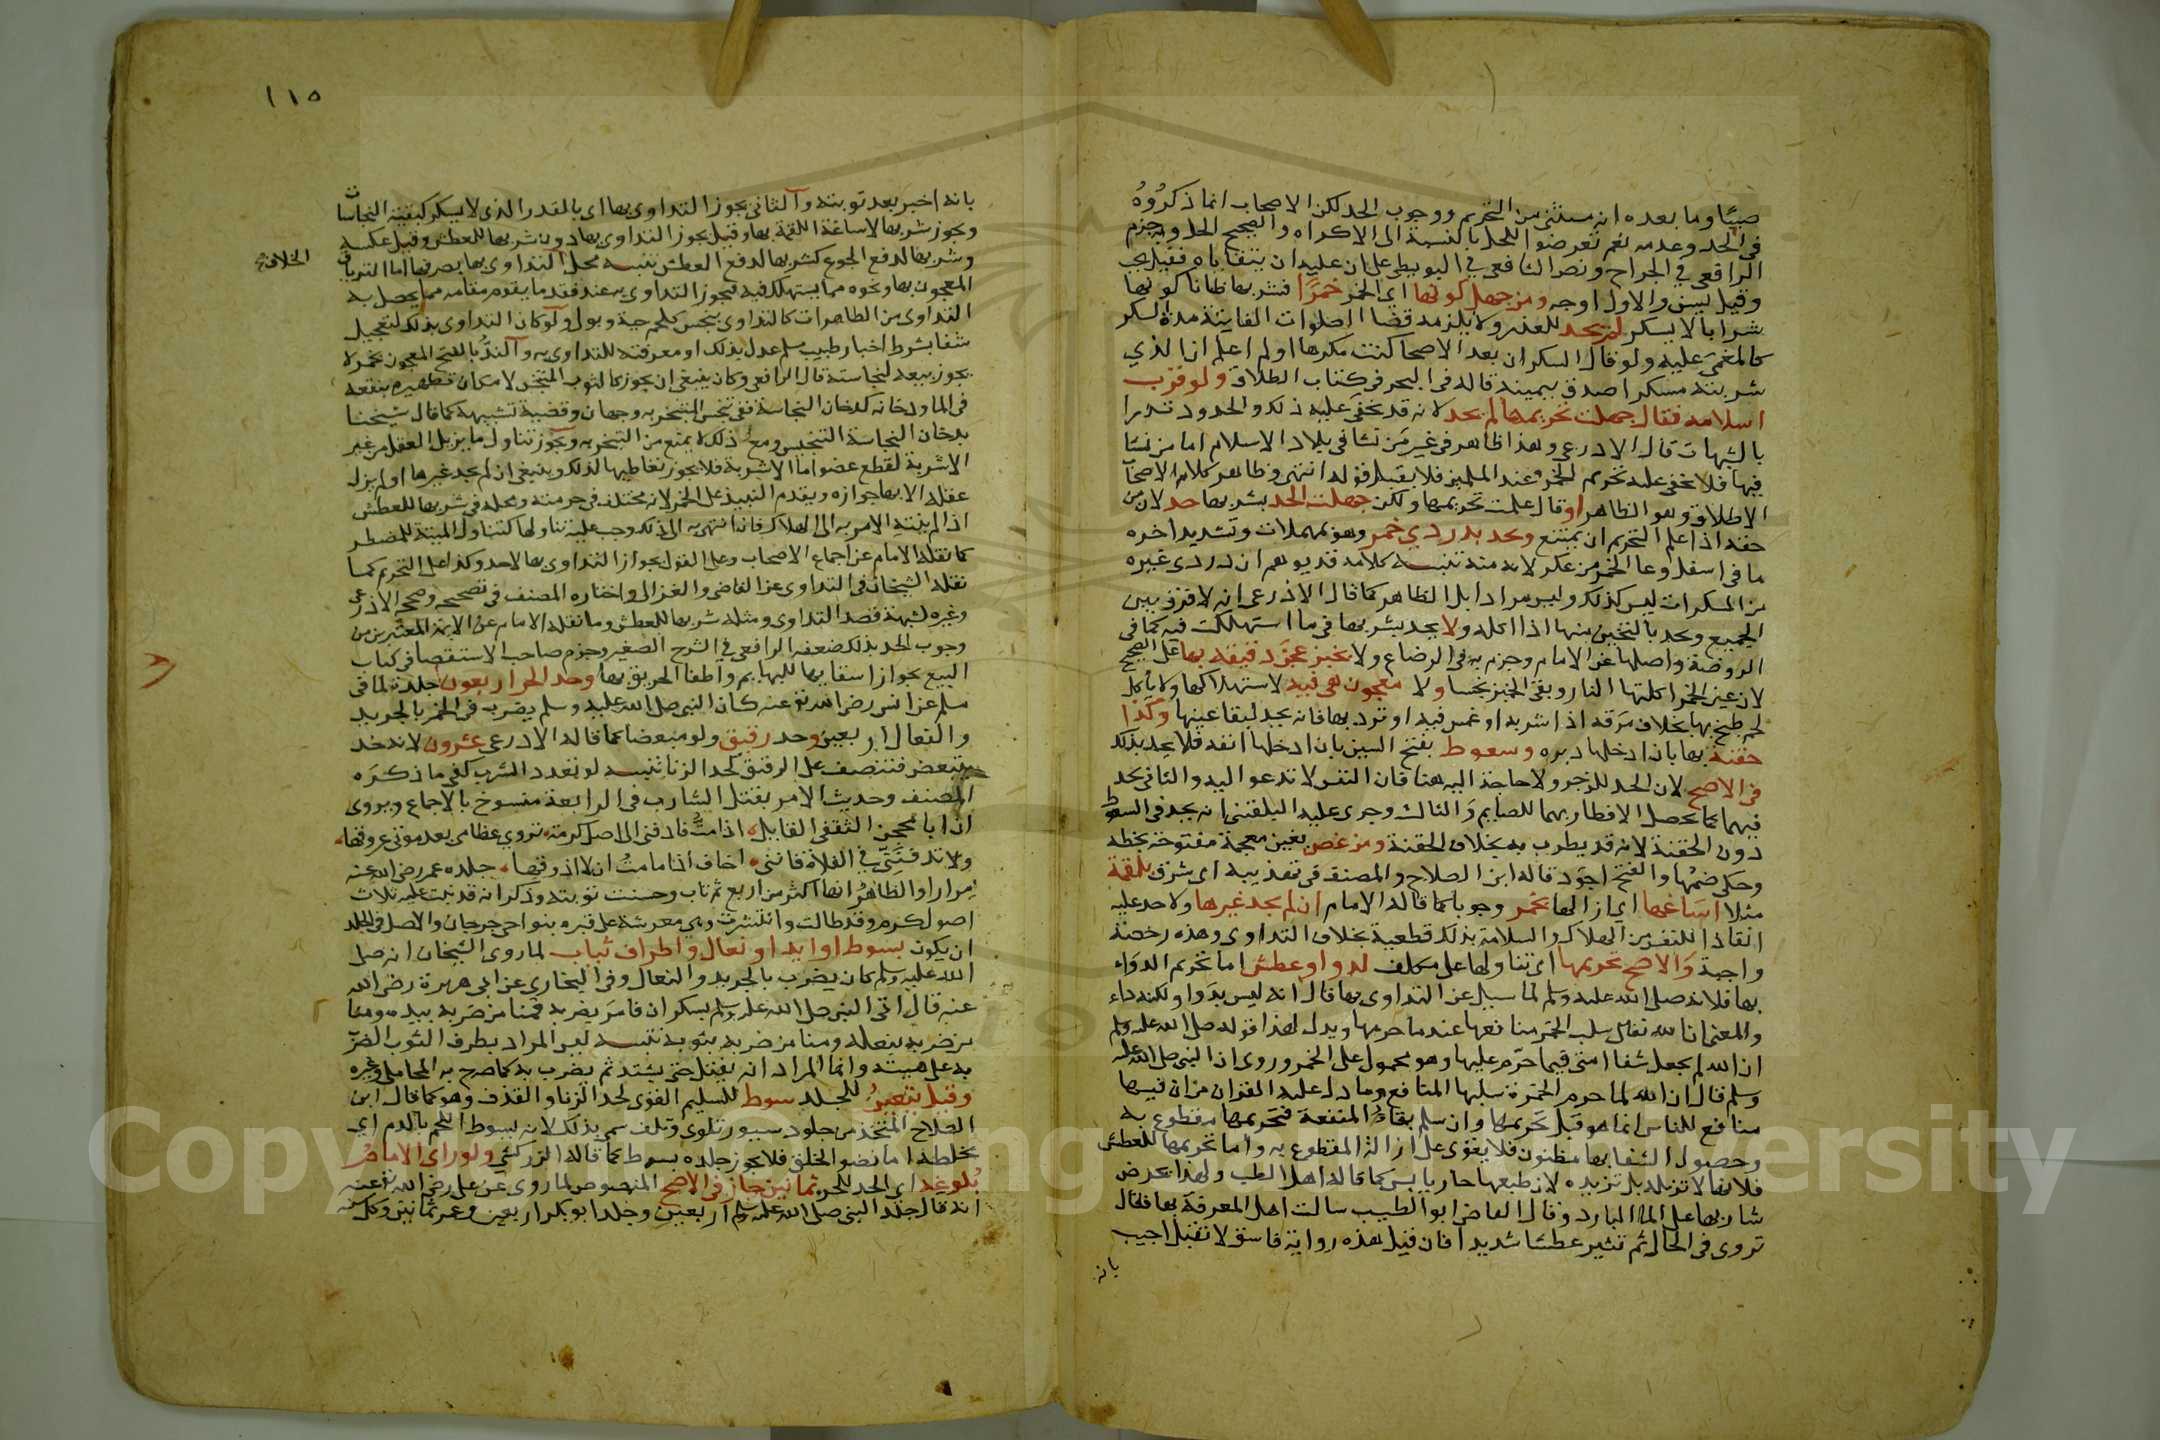 صبيا وما بعده انه مستثنى من التحريم ووجوب الحد لكن الاصحاب انما ذكروه
في الحد وعدمه نعم تعرضوا للحل بالنسبة الى الاكراه والصحيح الحل وجزم
الرافعي في الجراح ونص الشافعي في البويطي على ان عليه ان يتقاياه فقيل يجب
وقيل يسن والاول اوجه ومن جهل كونها اي الخمر خمرا فشربها ظانا كونها
شرابا لا يسكر لم يحد للعذر ولا يلزمه قضا الصلوات الفايتة مدة السكر
كالمغمى عليه ولو قال السكران بعد الاصحا كنت مكرها او لم اعلم ان الذي
شربته مسكرا صدق بيمينه قاله في البحر في كتاب الطلاق ولو قرب
اسلامه فقال جهلت تحريمها لم يحد لانه قد يخفى عليه ذلك والحدود تدرا
بالشبهات قال الاذرعي وهذا ظاهر في غير من نشا في بلاد الاسلام اما من نشا
فيها فلا يخفى عليه تحريم الخمر عند المسلمين فلا يقبل قوله انتهى وظاهر كلام الاصحاب
الاطلاق وهو الظاهر او قال علمت تحريمها ولكن جهلت الحد بشربها حد لان من
حقه اذا علم التحريم ان يمتنع ويحد بدردي خمر وهو بمهملات وتشديد اخره
ما في اسفل وعا الخمر من عكر لانه منه تنبيه كلامه قد يوهم ان دردي غيره
من المسكرات ليس كذلك وليس مرادا بل الظاهر كما قال الاذرعي انه لا فرق بين
الجميع ويحد بالثخين منها اذا اكله ولا يحد بشربها في ما استهلكت فيه كما في
الروضة واصلها عن الامام وجزم به في الرضاع ولا بخبز عجن دقيقه بها على الصحيح
لان عين الخمر اكلتها النار وبقي الخبز نجسا ولا معجون هي فيه لاستهلاكها ولا باكل
لحم طبخ بها بخلاف مرقه اذا شربه او غمس فيه او ثرد بها فانه يحد لبقا عينها وكذا
حقنة بها بان ادخلها دبره وسعوط بفتح السين بان ادخلها انفه فلا يحد بذلك
في الاصح لان الحد للزجر ولا حاجة اليه هنا فان النفس لا تدعو اليه والثاني يحد
فيهما كما يحصل الافطار بهما للصايم والثالث وجرى عليه البلقيني انه يحد في السعوط
دون الحقنة لانه قد يطرب به بخلاف الحقنة ومن غص بغين معجمة مفتوحة بخطه
وحكى ضمها والفتح اجود قاله ابن الصلاح والمصنف في تهذيبه اي شرق بلقمة
مثلا اساغها اي ازالها بخمر وجوبا كما قاله الامام ان لم يجد غيرها ولا حد عليه
انقاذا للنفس من الهلاك والسلامة بذلك قطعية بخلاف التداوي وهذه رخصة
واجبة والاصح تحريمها اي تناولها على مكلف لدوا وعطش اما تحريم الدواء
بها فلانه صلى الله عليه وسلم لما سيل عن التداوي بها قال انه ليس بدوا ولكنه داء
والمعنى ان الله تعالى سلب الخمر منافعها عندما حرمها ويدل لهذا قوله صلى الله عليه وسلم
ان الله لم يجعل شفا امتي فيما حرم عليها وهو محمول على الخمر وروى ان النبي صلى الله عليه
وسلم قال ان الله لما حرم الخمرة سلبها المنافع وما دل عليه القران من ان فيها
منافع للناس انما هو قبل تحريمها وان سلم بقاء المنفعة فتحريمها مقطوع به
وحصول الشفا بها مظنون فلا يقوى على ازالة المقطوع به واما تحريمها للعطش
فلانها لا تزيله بل تزيده لان طبعها حار يابس كما قاله اهل الطب ولهذا يحرص
شاربها على الما البارد وقال القاضي ابو الطيب سالت اهل المعرفة بها فقال
تروي في الحال ثم تثير عطشا شديدا فان قيل هذه رواية فاسق لا تقبل اجيب
بانه
١١٥
بانه اخبر بعد توبته والثاني يجوز التداوي بها اي بالقدر الذي لا يسكر كبقية النجاسات
ويجوز شربها لاساغة اللقمة بها وقيل يجوز التداوي بها دون شربها للعطش وقيل عكسه
وشربها لدفع الجوع كشربها لدفع العطش تنبيه محل الخلاف في التداوي بها بصرفها اما الترياق
المعجون بها ونحوه مما يستهلك فيه فيجوز التداوي به عند فقد ما يقوم مقامه مما يحصل به
التداوي من الطاهرات كالتداوي بنجس كلحم حية وبول ولو كان التداوي بذلك لتعجيل
شفا بشرط اخبار طبيب مسلم عدل بذلك او معرفته للتداوي به والند بالفتح المعجون بخمر لا
يجوز بيعه لنجاسته قال الرافعي وكان ينبغي ان يجوز كالثوب المتنجس لامكان تطهيره بنقعه
في الما ودخانه كدخان النجاسة ففي تنجس المتبخر به وجهان وقضية تشبيهه كما قال شيخنا
بدخان النجاسة التنجيس ومع ذلك لا يمنع من التبخر به ويجوز تناول ما يزيل العقل من غير
الاشربة لقطع عضو اما الاشربة فلا يجوز تعاطيها لذلك وينبغي ان لم يجد غيرها او لم يزل
عقله الا بها جوازه ويقدم النبيذ على الخمر لانه مختلف في حرمته ومحله في شربها للعطش
اذا لم ينته الامر به الى الهلاك فان انتهى به الى ذلك وجب عليه تناولها كتناول الميتة للمضطر
كما نقله الامام عن اجماع الاصحاب وعلى القول بجواز التداوي بها لا حد وكذا على التحريم كما
نقله الشيخان في التداوي عن القاضي والغزالي واختاره المصنف في تصحيحه وصححه الاذرعي
وغيره لشبهة قصد التداوي ومثله شربها للعطش وما نقله الامام عن الايمة المعتبرين من
وجوب الحد بذلك ضعفه الرافعي في الشرح الصغير وجزم صاحب الاستقصا في كتاب
البيع بجواز اسقايها للبهايم واطفا الحريق بها وحد الحر اربعون جلدة لما في
مسلم عن انس رضي الله تعالى عنه كان النبي صلى الله عليه وسلم يضرب في الخمر بالجريد
والنعال اربعين وحد رقيق ولو مبعضا كما قاله الاذرعي عشرون لانه حد
يتبعض فتنصف على الرقيق كحد الزنا تنبيه لو تعدد الشرب كفى ما ذكره
المصنف وحديث الامر بقتل الشارب في الرابعة منسوخ بالاجماع ويروى
ان ابا محجن الثقفي القايل اذا مت فادفني الى اصل كرمة تروي عظامي بعد موتي عروقها
ولا تدفنني في الفلاة فانني اخاف اذا ما مت ان لا اذوقها جلده عمر رضي الله عنه
مرارا والظاهر انها اكثر من اربع ثم تاب وحسنت توبته وذكر انه قد نبت عليه ثلاث
اصول كرم وقد طالت وانتشرت وهي معرشة على قبره بنواحي جرجان والاصل في الجلد
ان يكون بسوط او ايد او نعال واطراف ثياب لما روى الشيخان انه صلى
الله عليه وسلم كان يضرب بالجريد والنعال وفي البخاري عن ابي هريرة رضي الله
عنه قال اتي النبي صلى الله عليه وسلم بسكران فامر بضربه فمنا من ضربه بيده ومنا
من ضربه بنعله ومنا من ضربه بثوبه تنبيه ليس المراد بطرف الثوب الضرب
به على هيئته وانما المراد انه يفتل حتى يشتد ثم يضرب به كما صرح به المحاملي وغيره
وقيل يتعين للجلد سوط للسليم القوي لحد الزنا والقذف وهو كما قال ابن
الصلاح المتخذ من جلود سيور تلوى وتلف سمي بذلك لانه يسوط اللحم بالدم اي
يخلطه اما نضو الخلق فلا يجوز جلده بسوط كما قاله الزركشي ولو راى الامام
بلوغه اي الحد للحر ثمانين جاز في الاصح المنصوص لما روي عن علي رضي الله تعالى عنه
انه قال جلد النبي صلى الله عليه وسلم اربعين وجلد ابو بكر اربعين وعمر ثمانين وكل سنة